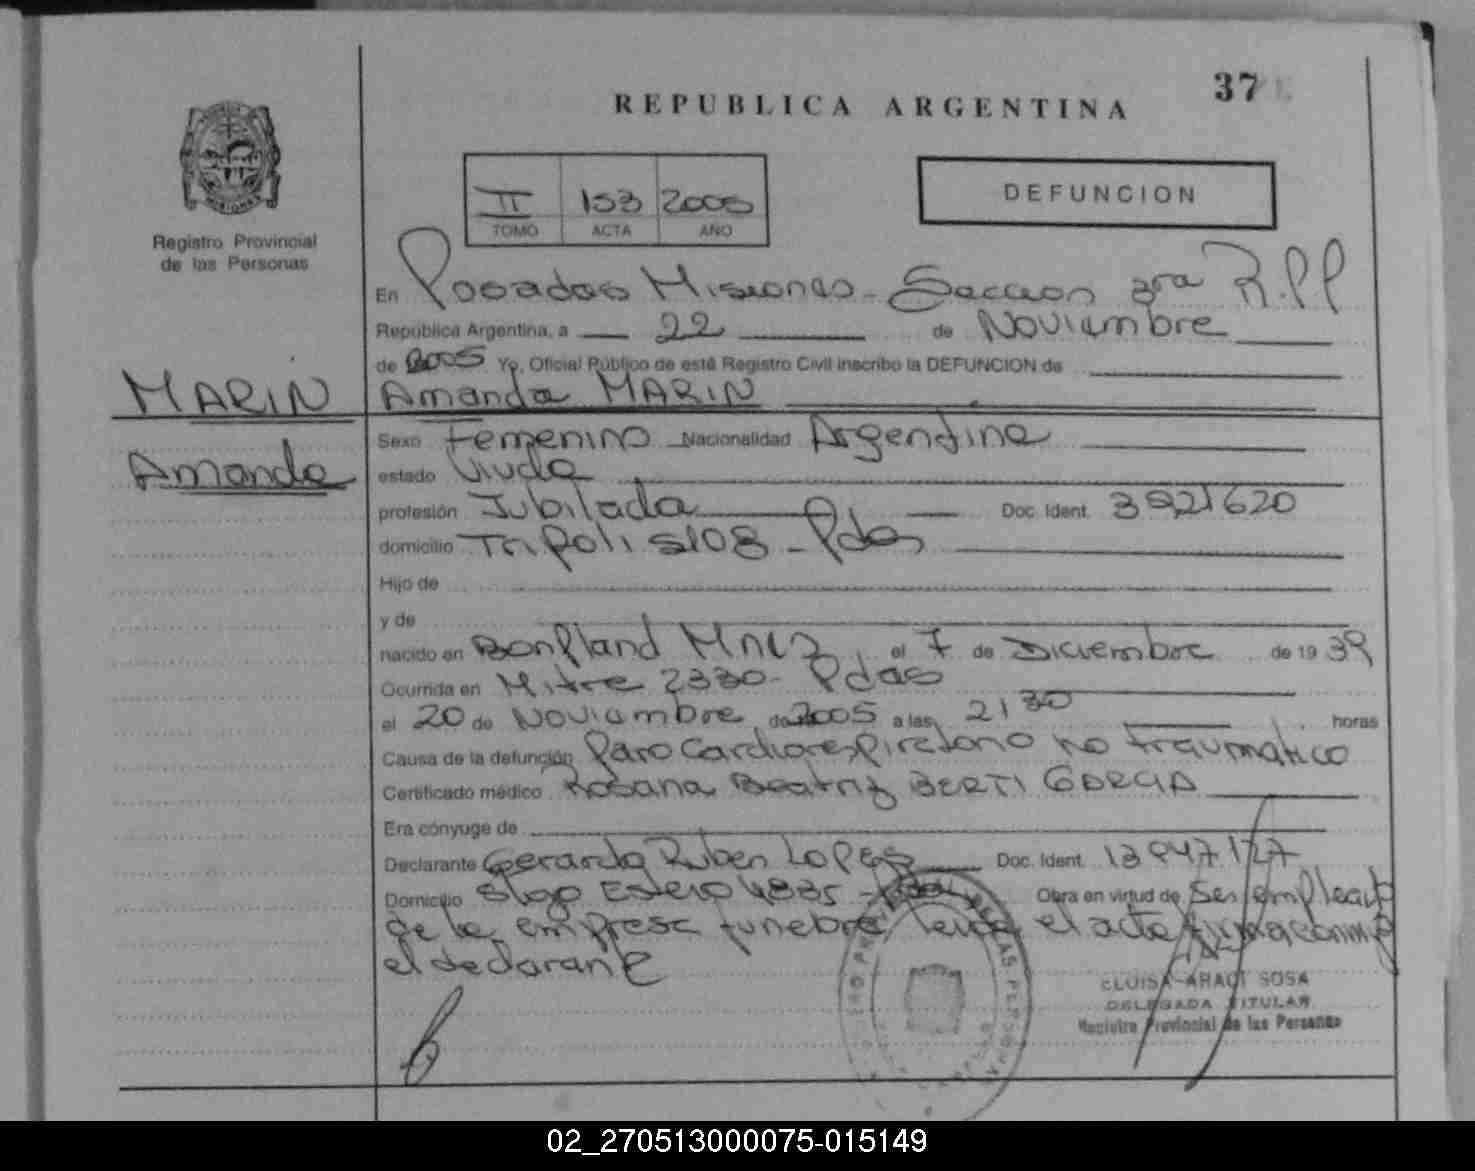 37
REPUBLICA ARGENTINA
II 153 2005
TOMO ACTA AÑO
DEFUNCION
MISIONES
Registro Provincial
de las Personas
En Posadas Misiones - Seccion 3ra R.P.P
República Argentina, a 22 de Noviembre
de 2005 Yo, Oficial Público de esté Registro Civil inscribo la DEFUNCION de
MARIN
Amanda MARIN
Amanda
Sexo Femenino Nacionalidad Argentina
estado Viuda
profesión Jubilada Doc. Ident. 3921620
domicilio Tripoli 5108 - Pdas
Hijo de
y de
nacido en Bonpland Mnes el 7 de Diciembre de 19 39
Ocurrida en Mitre 2330 - Pdas
el 20 de Noviembre de 2005 a las 21 30 horas
Causa de la defunción Paro Cardiorespiratorio no traumatico
Certificado médico Rosana Beatriz BERTI GARCIA
Era cónyuge de
Declarante Gerardo Ruben Lopes Doc. Ident. 13847127
Domicilio Stgo Estero 4835 - Obra en virtud de Ser empleado
de la empresa funebre leida el acta firma conmigo
el declarante
ELOISA ARACI SOSA
DELEGADA TITULAR
Registro Provincial de las Personas
02_270513000075-015149